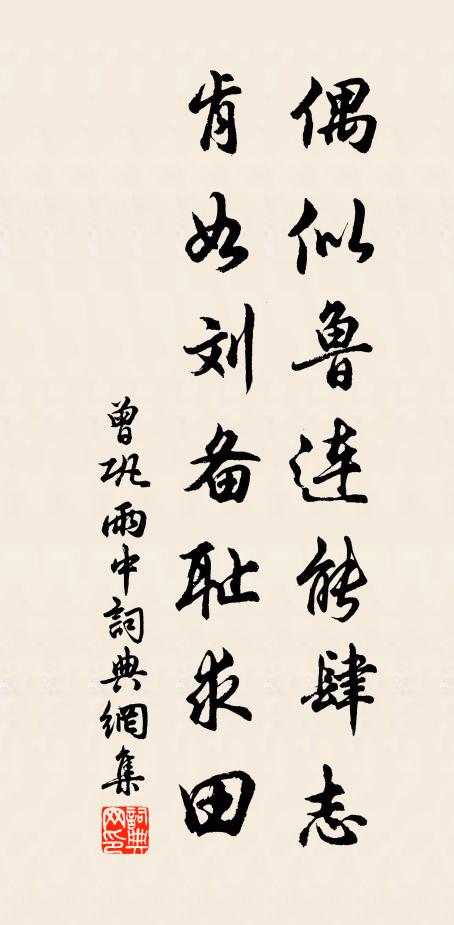 偶似鲁连能肆志
肯如刘备耻求田
曾巩雨中詞典網集
詞典网印